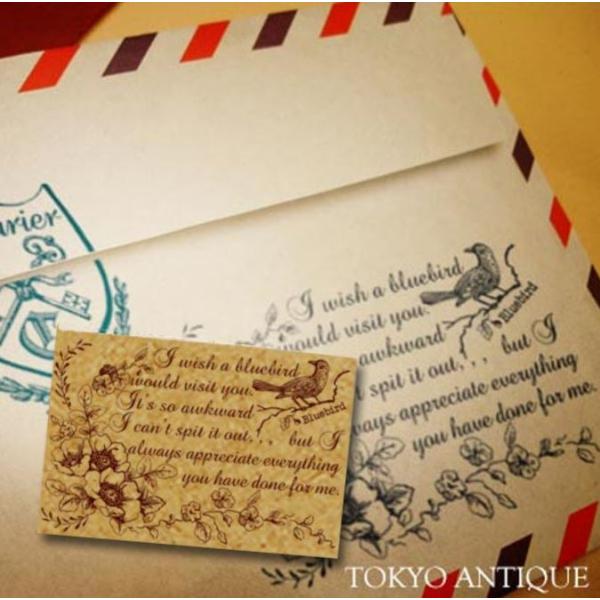 I wish a bluebird
would visit you.
awkward
spit it out,,, but I
ways appreciate everything
you have done for me.
Bluebird
I wish a bluebird
would visit you.
It's so awkward
I can't spit it out,,, but I
always appreciate everything
you have done for me.
Bluebird
TOKYO ANTIQUE